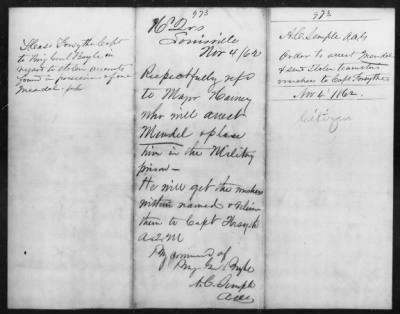 373
Pleas Forsythe Capt
to Brig Genl Boyle in
regard to stolen accounts
found in possession of one
Mendel
373
Hd Qrs
Louisville
Nov 4/62
Respectfully refd
to Major Harney
who will arrest
Mendel & place
him in the Military
prison—
He will get the vouchers
within named & return
them to Capt Forsyth
A.Q.M
By command of
Brig Gen Boyle
A.C. Semple
AAG
373
A.C. Semple AAG
Order to arrest Mendel
& send Stolen transfer
vouchers to Capt Forsythe
Nov 4 1862.
Citizen